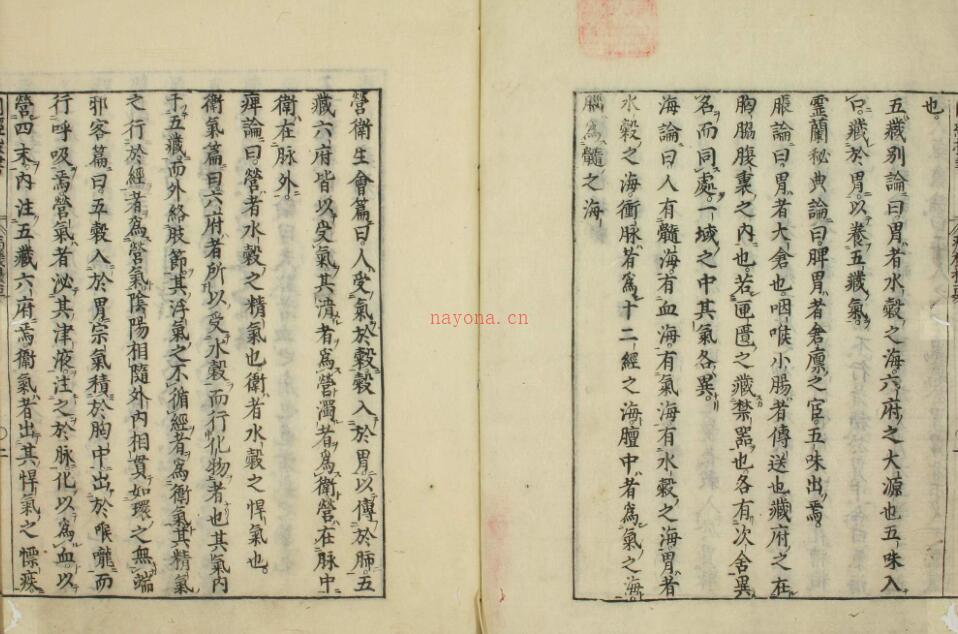 也
五藏別論曰胃者水穀之海六府之大源也五味入
口藏於胃以養五藏氣
靈蘭秘典論曰脾胃者倉廩之官五味出焉
脹論曰胃者大倉也咽喉小腸者傳送也藏府之在
胸脇腹裏之內也若匣匱之藏禁器也各有次舍異
名而同處一域之中其氣各異
海論曰人有髓海有血海有氣海有水穀之海胃者
水穀之海衝脉者爲十二經之海膻中者爲氣之海
腦爲髓之海
營衛生會篇曰人受氣於穀穀入於胃以傳於肺五
藏六府皆以受氣其清者爲營濁者爲衛營在脉中
衛在脉外
痺論曰營者水穀之精氣也衛者水穀之悍氣也
衛氣篇曰六府者所以受水穀而行化物者也其氣內
于五藏而外絡肢節其浮氣之不循經者爲衛氣其精氣
之行於經者爲營氣陰陽相隨外內相貫如環之無端
邪客篇曰五穀入於胃宗氣積於胸中出於喉嚨而
行呼吸焉營氣者泌其津液注之於脉化以爲血以
營四末內注五藏六府焉衛氣者出其悍氣之慓疾
nayona.cn